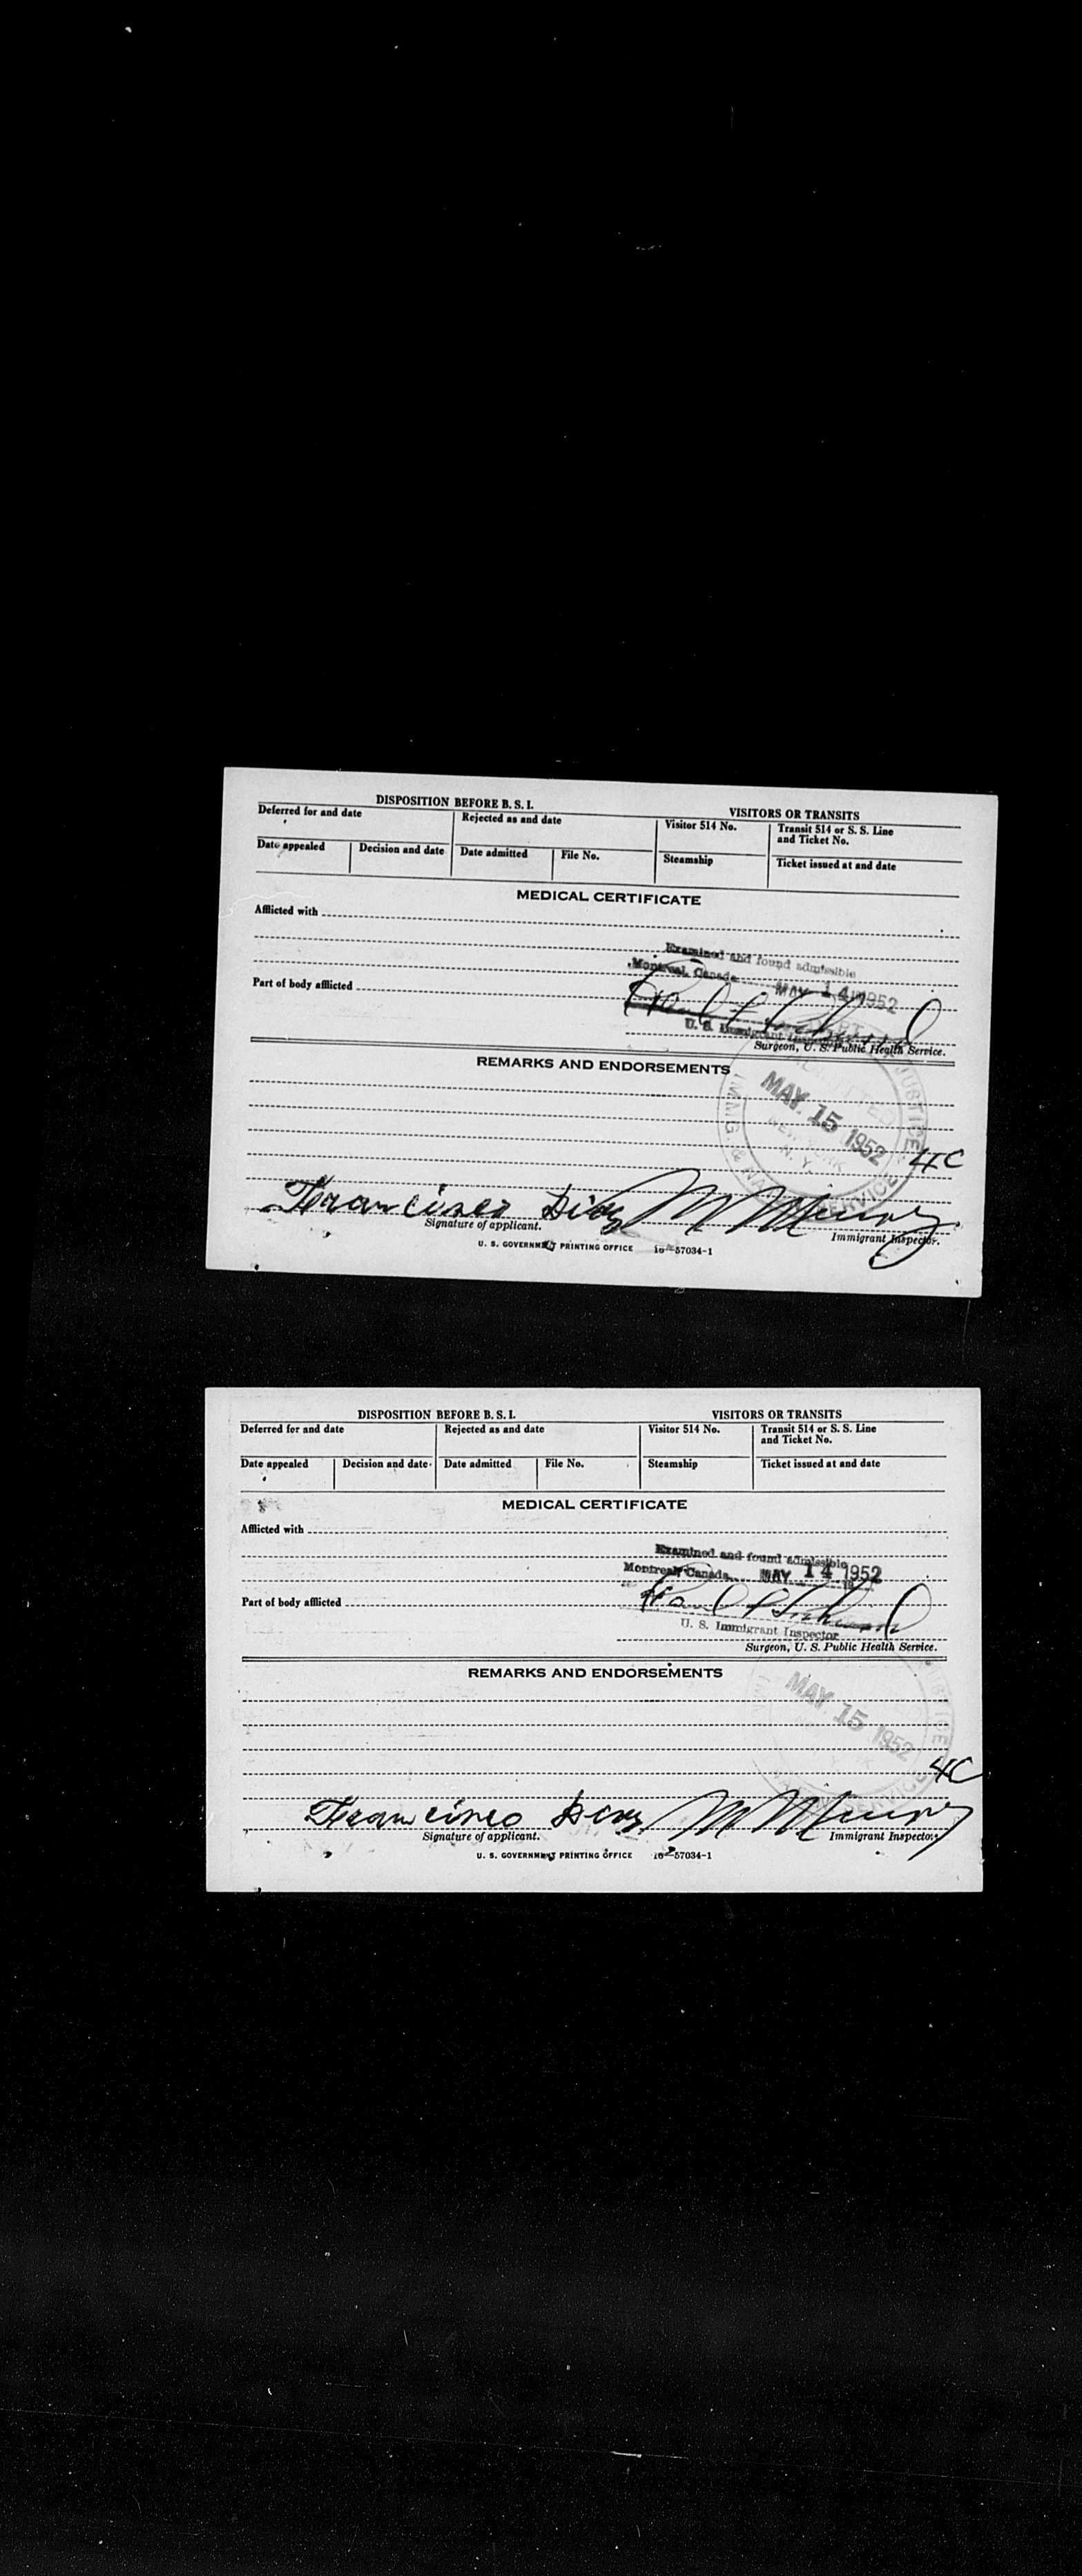 DISPOSITION BEFORE B. S. I.
VISITORS OR TRANSITS
Deferred for and date
Rejected as and date
Visitor 514 No.
Transit 514 or S. S. Line
and Ticket No.
Date appealed
Decision and date
Date admitted
File No.
Steamship
Ticket issued at and date
MEDICAL CERTIFICATE
Afflicted with
Examined and found admissible
Montreal, Canada MAY 14 1952
Part of body afflicted
U. S. Immigrant Inspector
Surgeon, U. S. Public Health Service.
REMARKS AND ENDORSEMENTS
JUSTICE
ADMITTED
MAY 15 1952
NEW YORK
N. Y.
IMMG. & NAT. SERVICE
4C
Francisco
Signature of applicant.
Immigrant Inspector.
U. S. GOVERNMENT PRINTING OFFICE 16—57034-1
DISPOSITION BEFORE B. S. I.
VISITORS OR TRANSITS
Deferred for and date
Rejected as and date
Visitor 514 No.
Transit 514 or S. S. Line
and Ticket No.
Date appealed
Decision and date
Date admitted
File No.
Steamship
Ticket issued at and date
MEDICAL CERTIFICATE
Afflicted with
Examined and found admissible
Montreal, Canada MAY 14 1952
Part of body afflicted
Paul
U. S. Immigrant Inspector
Surgeon, U. S. Public Health Service.
REMARKS AND ENDORSEMENTS
MAY 15 1952
4C
Francisco
Signature of applicant.
Immigrant Inspector.
U. S. GOVERNMENT PRINTING OFFICE 16—57034-1